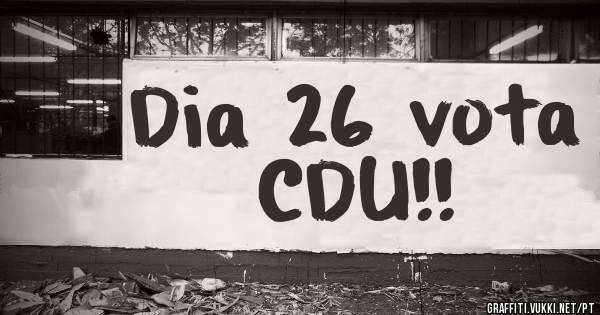 Dia 26 vota
CDU!!
GRAFFITI.VUKKI.NET/PT